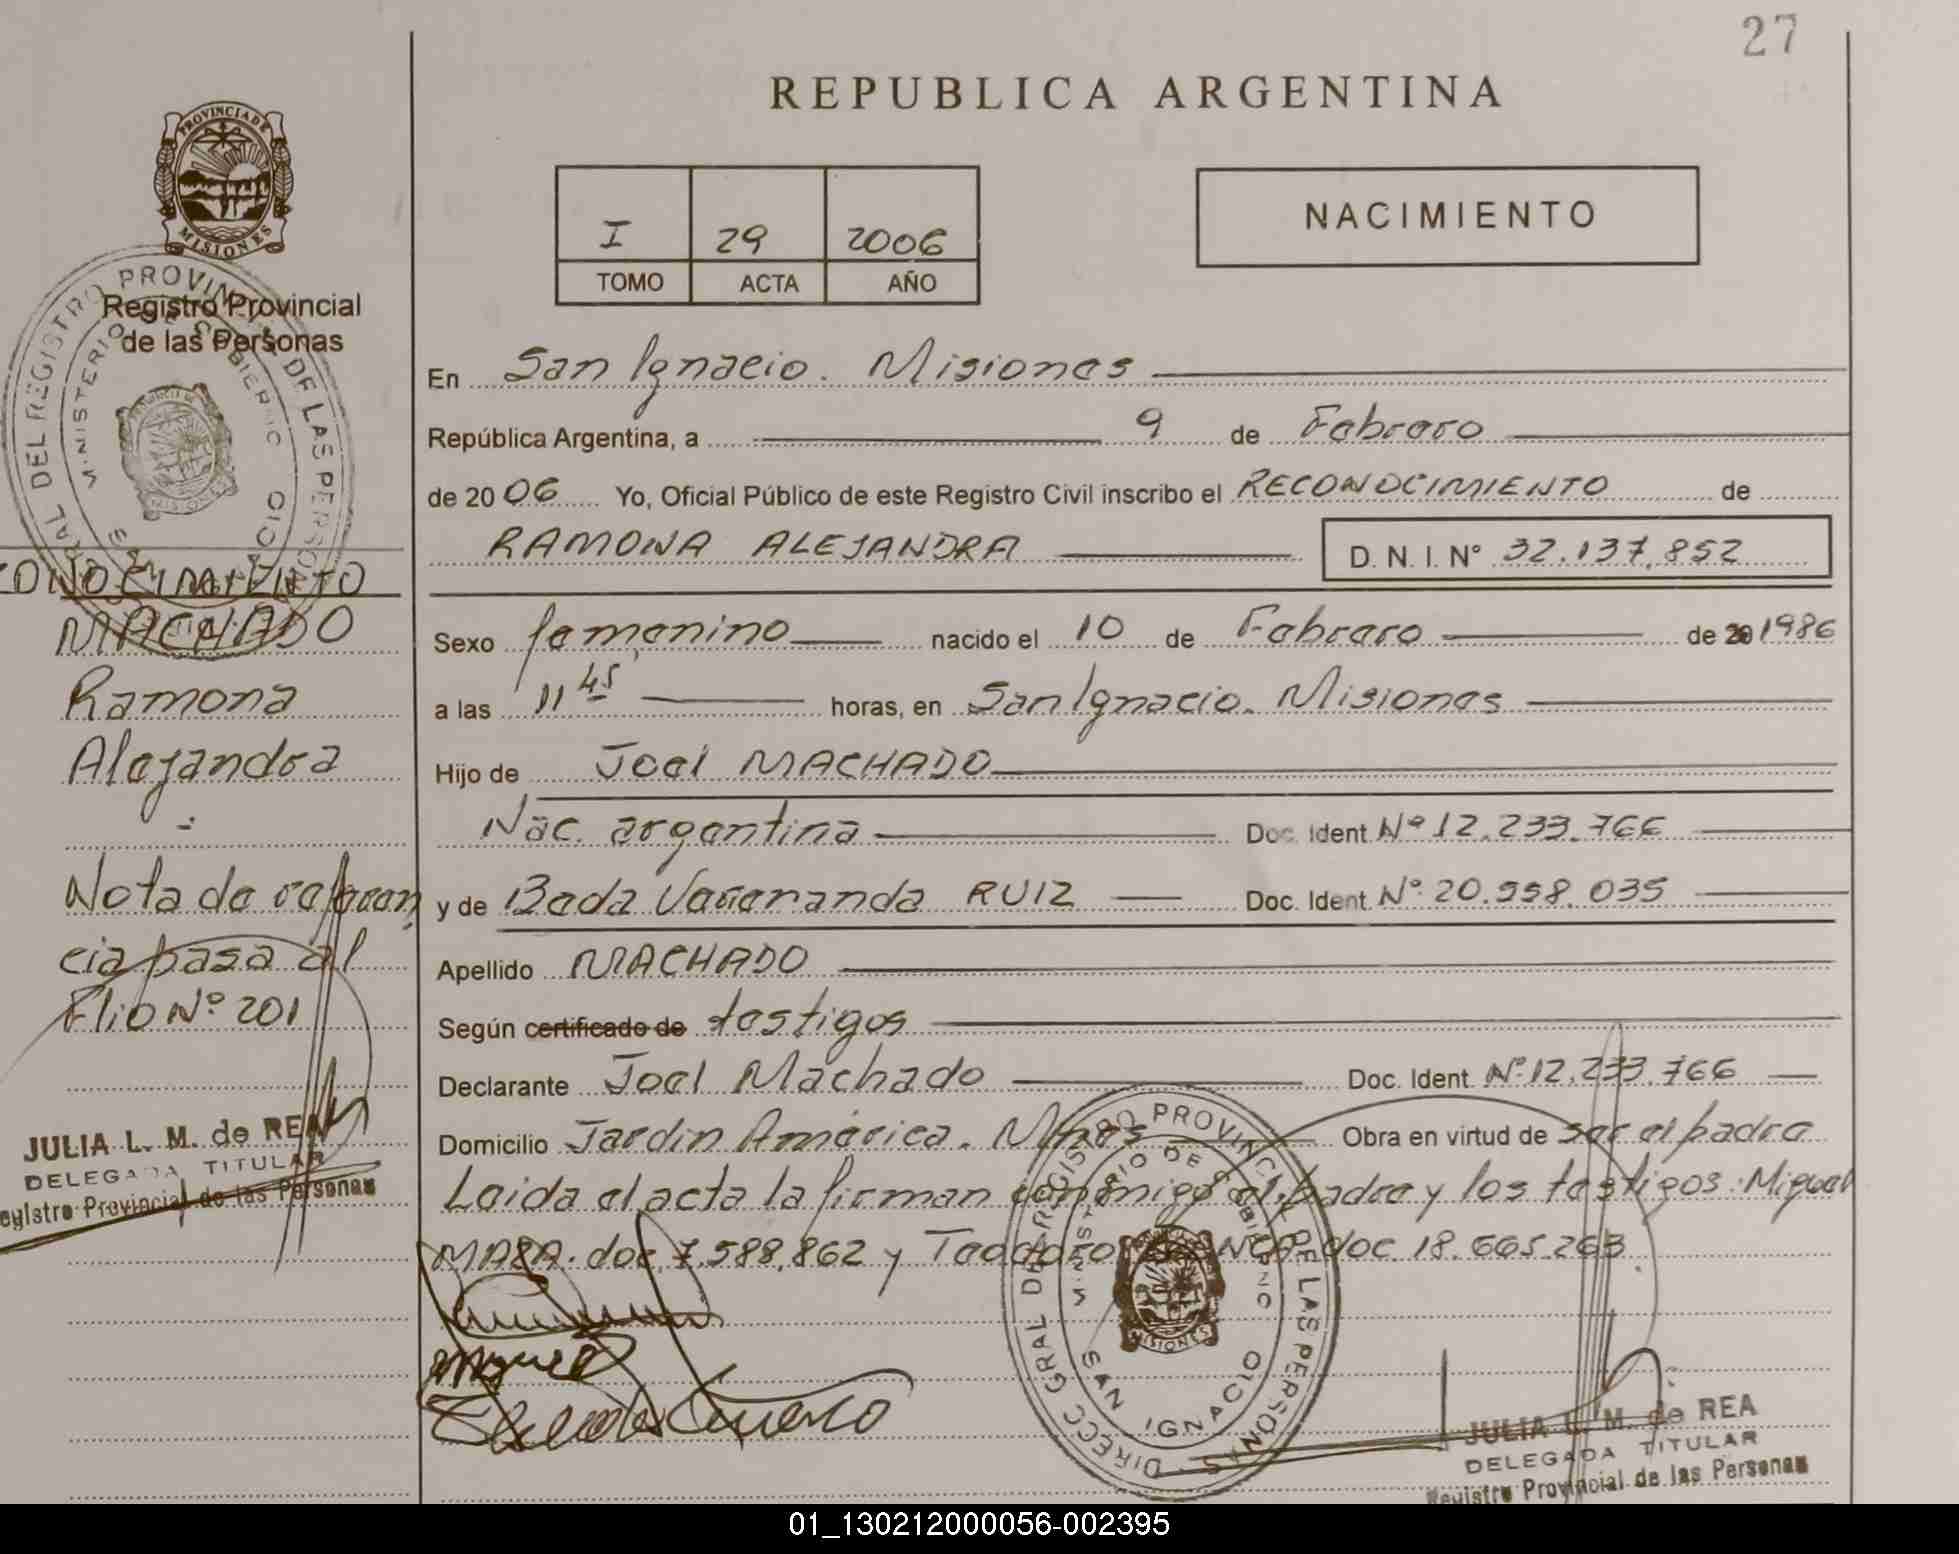 27
REPUBLICA ARGENTINA
PROVINCIA DE
MISIONES
Registro Provincial
de las Personas
I 29 2006
TOMO ACTA AÑO
NACIMIENTO
En San Ignacio. Misiones
República Argentina, a 9 de Febrero
de 20 06 Yo, Oficial Público de este Registro Civil inscribo el RECONOCIMIENTO de
RAMONA ALEJANDRA D. N. I. N° 32.137.852
Sexo femenino nacido el 10 de Febrero de 20 1986
a las 11 45 horas, en San Ignacio. Misiones
Hijo de Joel MACHADO
Nac. argentina Doc. Ident Nº 12.233.766
y de Beda RUIZ Doc. Ident Nº 20.558.035
Apellido MACHADO
Según certificado de testigos
Declarante Joel Machado Doc. Ident Nº 12.233.766
Domicilio Jardin América. Mnes Obra en virtud de ser el padre
Leida el acta la firman conmigo el padre y los testigos. Miguel
doc. 7.588.862 y Teodoro doc. 18.665.263
CONOCIMIENTO
MACHADO
Ramona
Alejandra
Nota de referen
cia pasa al
Flio Nº 201
JULIA L. M. de REA
DELEGADA TITULAR
Registro Provincial de las Personas
DIRECC GRAL DEL REGISTRO PROVINCIAL DE LAS PERSONAS
MINISTERIO DE GOBIERNO
SAN IGNACIO
MISIONES
Miguel
JULIA L. M. de REA
DELEGADA TITULAR
Registro Provincial de las Personas
01_130212000056-002395